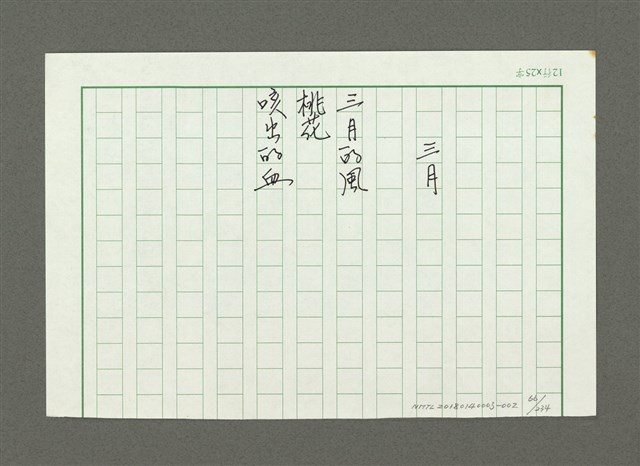 12行×25字
三月
三月的風
桃花
咳出的血
NMTL20180140003-002
66/234